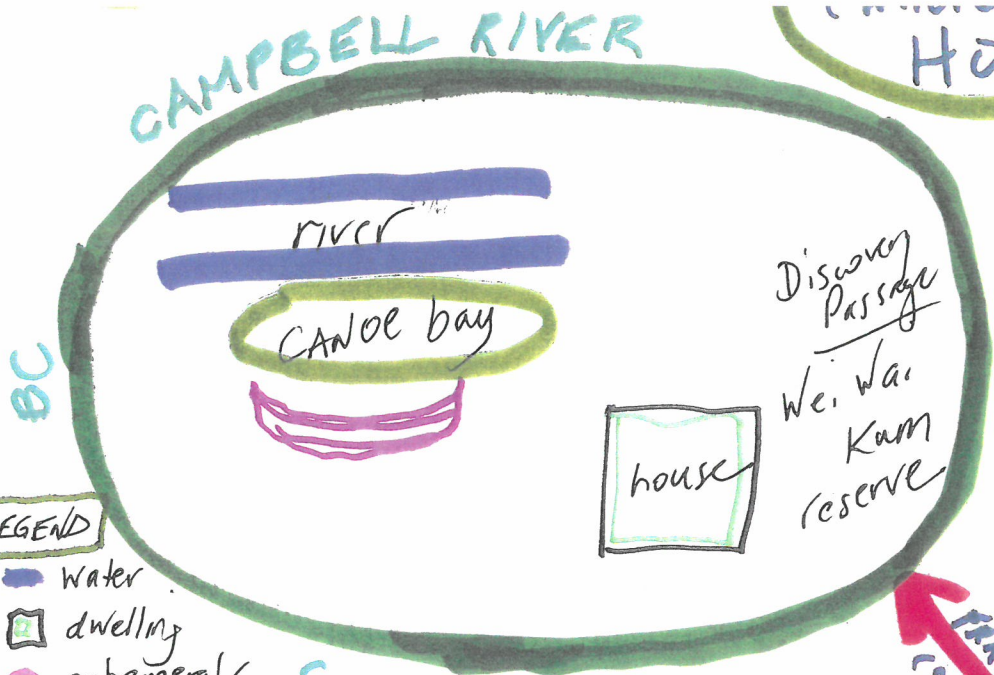 CAMPBELL RIVER
BC
river
CANOE bay
Discovery
Passage
Wei Wai
Kum
reserve
house
LEGEND
water
dwelling